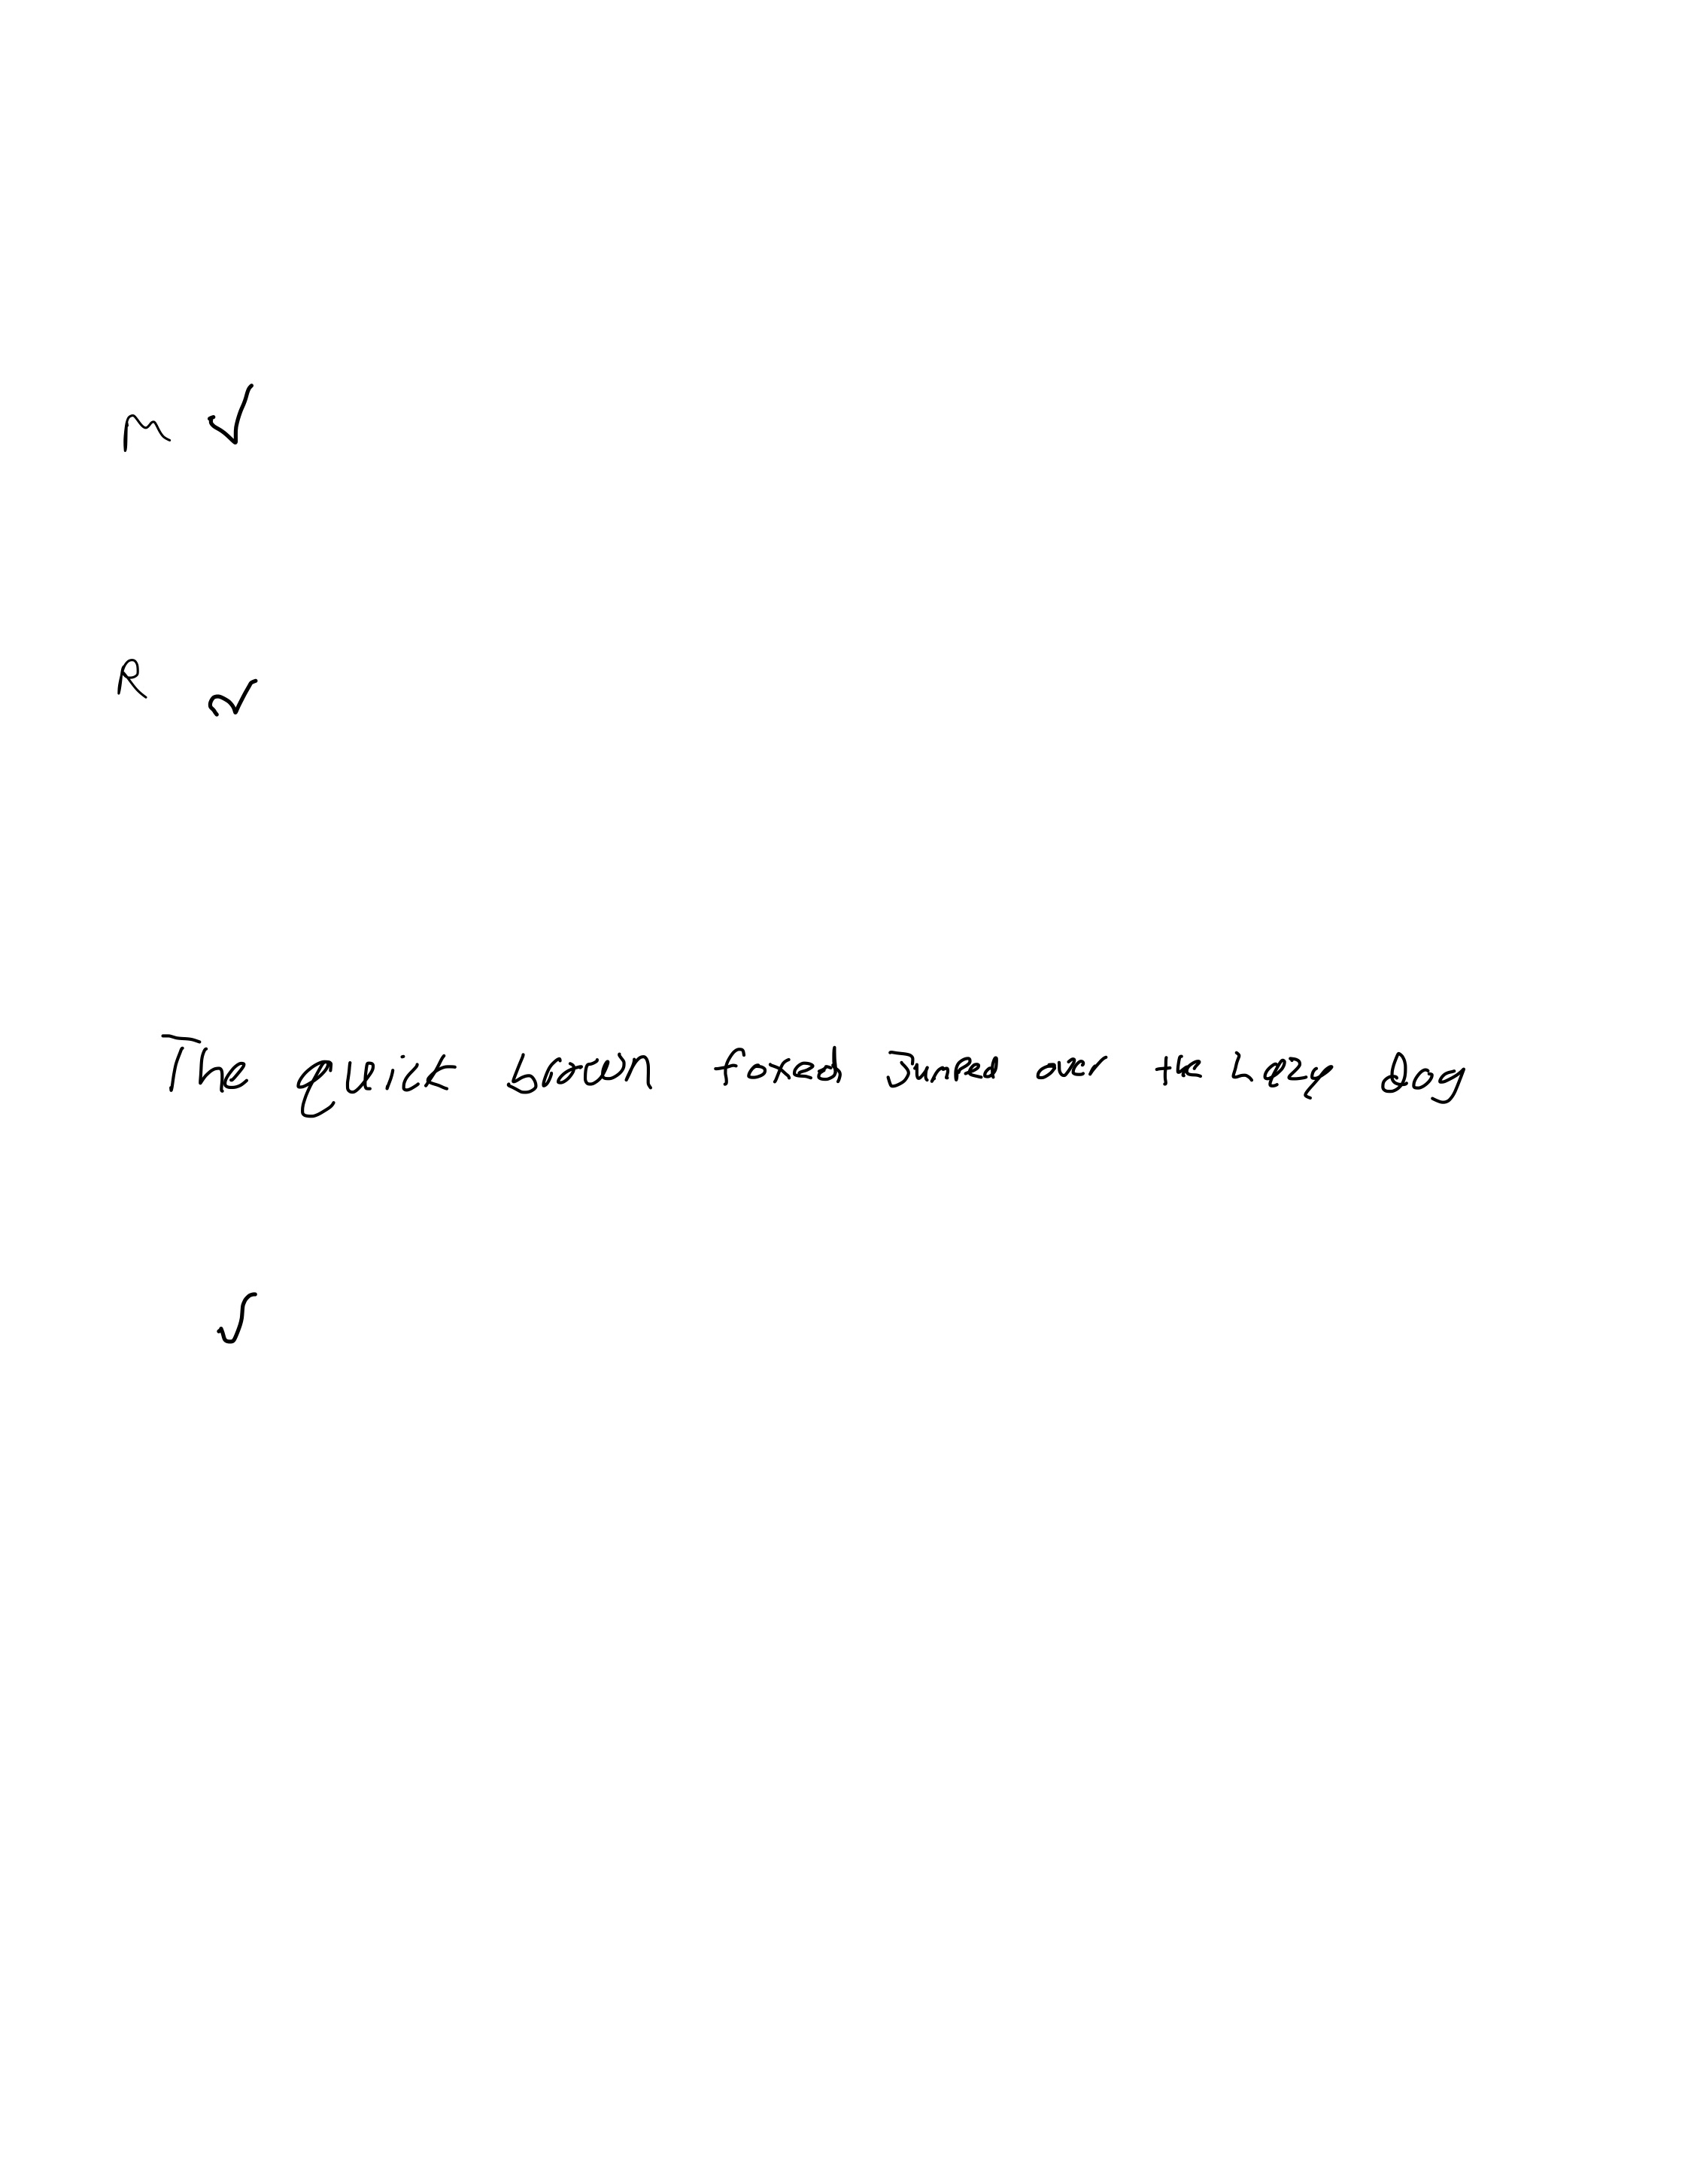 M ✓
R ✓
The quick brown foxed Jumped over the lazy dog
✓